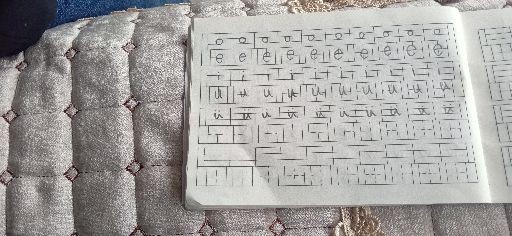 o o o o o o o o o o
e e e e e e e e e e
i i i i i i i i i i
u u u u u u u u u u
ü ü ü ü ü ü ü ü ü ü